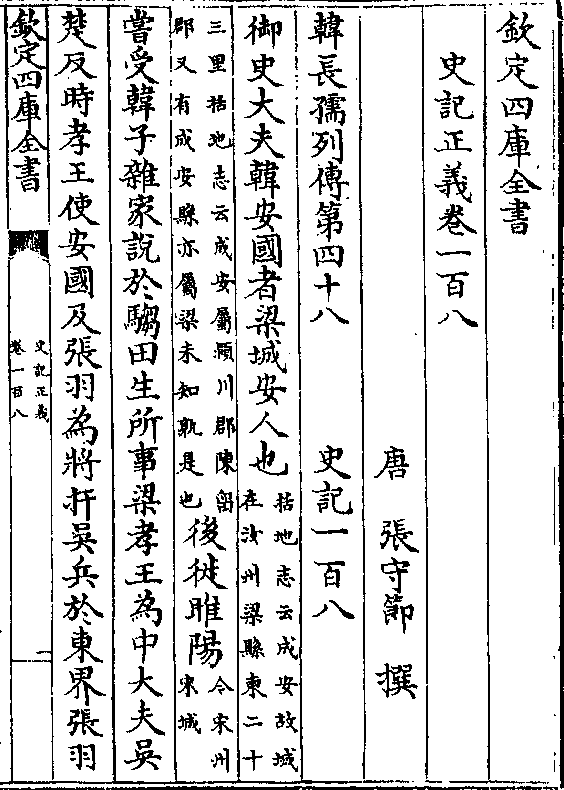 欽定四庫全書
史記正義卷一百八
唐 張守節 撰
韓長孺列傳第四十八 史記一百八
御史大夫韓安國者梁城安人也括地志云成安故城在汝州梁縣東二十
三里括地志云成安屬潁川郡陳留郡又有成安縣亦屬梁未知孰是也後徙睢陽今宋州宋城
嘗受韓子雜家說於騶田生所事梁孝王為中大夫吳
楚反時孝王使安國及張羽為將扞吳兵於東界張羽
欽定四庫全書
史記正義
卷一百八
一